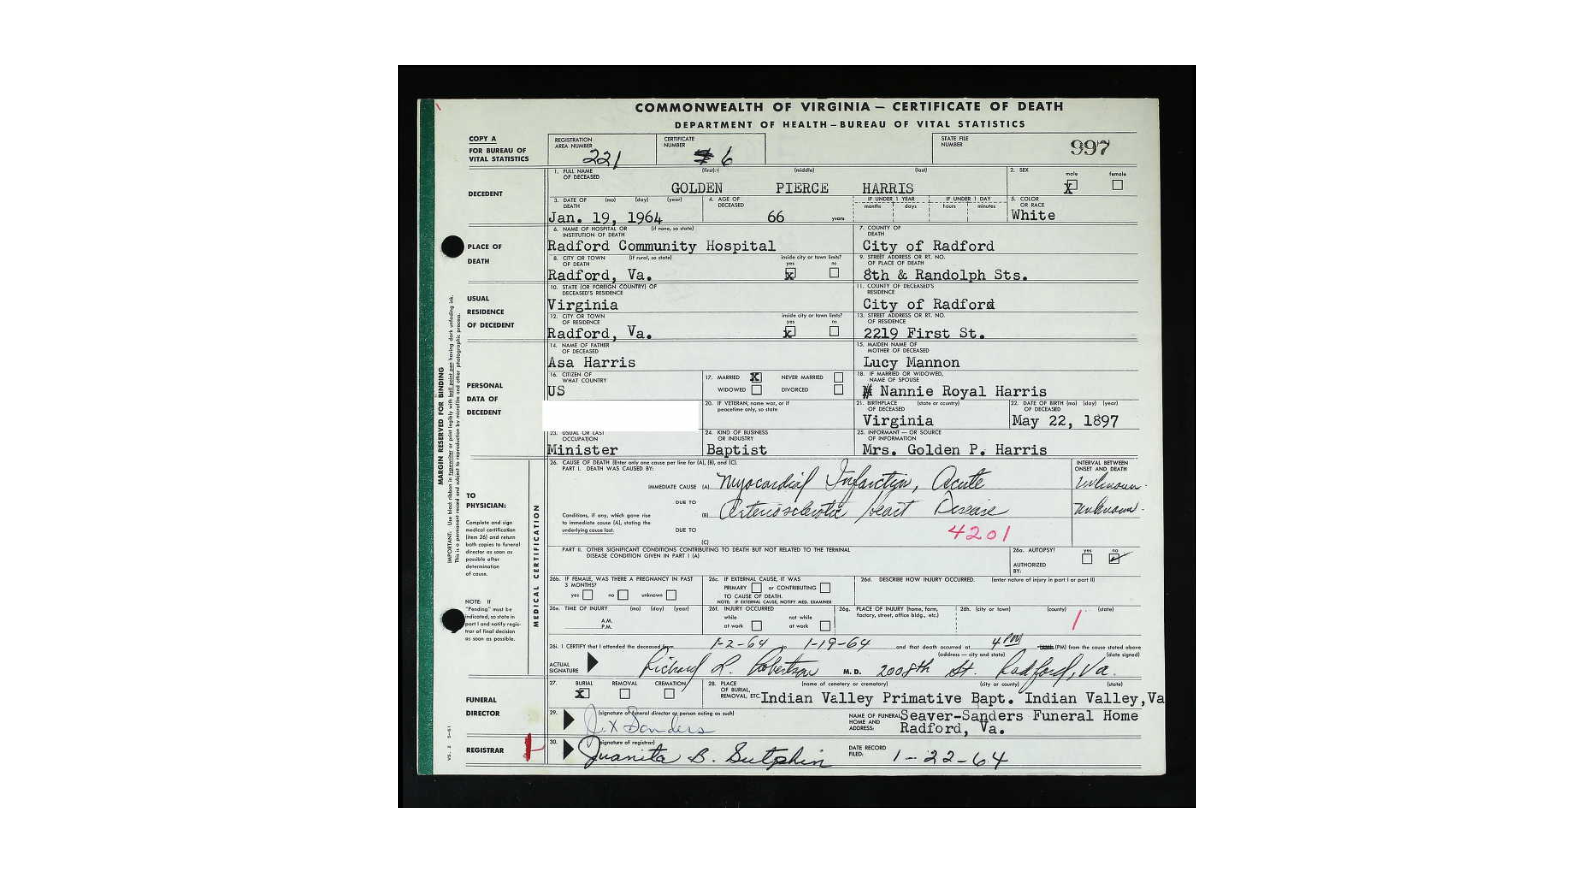 COMMONWEALTH OF VIRGINIA — CERTIFICATE OF DEATH
DEPARTMENT OF HEALTH — BUREAU OF VITAL STATISTICS
COPY A
FOR BUREAU OF
VITAL STATISTICS
REGISTRATION
AREA NUMBER 221
CERTIFICATE
NUMBER 6
STATE FILE
NUMBER 997
DECEDENT
1. FULL NAME
OF DECEASED (first) (middle) (last)
GOLDEN PIERCE HARRIS
2. SEX
male female
X
3. DATE OF
DEATH (mo) (day) (year)
Jan. 19, 1964
4. AGE OF
DECEASED
66 years
IF UNDER 1 YEAR
months days
IF UNDER 1 DAY
hours minutes
5. COLOR
OR RACE
White
PLACE OF
DEATH
6. NAME OF HOSPITAL OR
INSTITUTION OF DEATH (if none, so state)
Radford Community Hospital
7. COUNTY OF
DEATH
City of Radford
8. CITY OR TOWN
OF DEATH (if rural, so state)
inside city or town limits?
yes no
Radford, Va. X
9. STREET ADDRESS OR RT. NO.
OF PLACE OF DEATH
8th & Randolph Sts.
USUAL
RESIDENCE
OF DECEDENT
10. STATE (OR FOREIGN COUNTRY) OF
DECEASED'S RESIDENCE
Virginia
11. COUNTY OF DECEASED'S
RESIDENCE
City of Radford
12. CITY OR TOWN
OF RESIDENCE
inside city or town limits?
yes no
Radford, Va. X
13. STREET ADDRESS OR RT. NO.
OF RESIDENCE
2219 First St.
PERSONAL
DATA OF
DECEDENT
14. NAME OF FATHER
OF DECEASED
Asa Harris
15. MAIDEN NAME OF
MOTHER OF DECEASED
Lucy Mannon
16. CITIZEN OF
WHAT COUNTRY
US
17. MARRIED X NEVER MARRIED
WIDOWED DIVORCED
18. IF MARRIED OR WIDOWED,
NAME OF SPOUSE
Nannie Royal Harris
20. IF VETERAN, name war, or if
peacetime only, so state
21. BIRTHPLACE (state or country)
OF DECEASED
Virginia
22. DATE OF BIRTH (mo) (day) (year)
OF DECEASED
May 22, 1897
23. USUAL OR LAST
OCCUPATION
Minister
24. KIND OF BUSINESS
OR INDUSTRY
Baptist
25. INFORMANT — OR SOURCE
OF INFORMATION
Mrs. Golden P. Harris
MARGIN RESERVED FOR BINDING
MEDICAL CERTIFICATION
TO
PHYSICIAN:
Complete and sign
medical certification
(item 26) and return
both copies to funeral
director as soon as
possible after
determination
of cause.
NOTE: If
"Pending" must be
indicated, so state in
part I and notify regis-
trar of final decision
as soon as possible.
26. CAUSE OF DEATH (Enter only one cause per line for (A), (B), and (C).
PART I. DEATH WAS CAUSED BY:
INTERVAL BETWEEN
ONSET AND DEATH
IMMEDIATE CAUSE (A) Myocardial Infarction, Acute Unknown
DUE TO
(B) Arteriosclerotic Heart Disease Unknown
Conditions, if any, which gave rise
to immediate cause (A), stating the
underlying cause last.
DUE TO
(C)
4201
PART II. OTHER SIGNIFICANT CONDITIONS CONTRIBUTING TO DEATH BUT NOT RELATED TO THE TERMINAL
DISEASE CONDITION GIVEN IN PART I (A)
26a. AUTOPSY? yes no
AUTHORIZED
BY:
26b. IF FEMALE, WAS THERE A PREGNANCY IN PAST
3 MONTHS?
yes no unknown
26c. IF EXTERNAL CAUSE, IT WAS
PRIMARY or CONTRIBUTING
TO CAUSE OF DEATH.
NOTE: IF EXTERNAL CAUSE, NOTIFY MED. EXAMINER
26d. DESCRIBE HOW INJURY OCCURRED. (enter nature of injury in part I or part II)
26e. TIME OF INJURY (mo) (day) (year)
A.M.
P.M.
26f. INJURY OCCURRED
while not while
at work at work
26g. PLACE OF INJURY (home, farm,
factory, street, office bldg., etc.)
26h. (city or town) (county) (state)
1
26i. I CERTIFY that I attended the deceased from 1-2-64 to 1-19-64 and that death occurred at 4 PM (PM) from the cause stated above
(address — city and state) (date signed)
ACTUAL
SIGNATURE Richard L. Robertson M.D. 200 8th St. Radford, Va.
FUNERAL
DIRECTOR
27. BURIAL REMOVAL CREMATION
X
28. PLACE
OF BURIAL,
REMOVAL, ETC. (name of cemetery or crematory) (city or county) (state)
Indian Valley Primative Bapt. Indian Valley, Va
29. (signature of funeral director or person acting as such)
Sanders
NAME OF FUNERAL
HOME AND
ADDRESS:
Seaver-Sanders Funeral Home
Radford, Va.
REGISTRAR
30. (signature of registrar)
Juanita B. Sutphin
DATE RECORD
FILED: 1-22-64